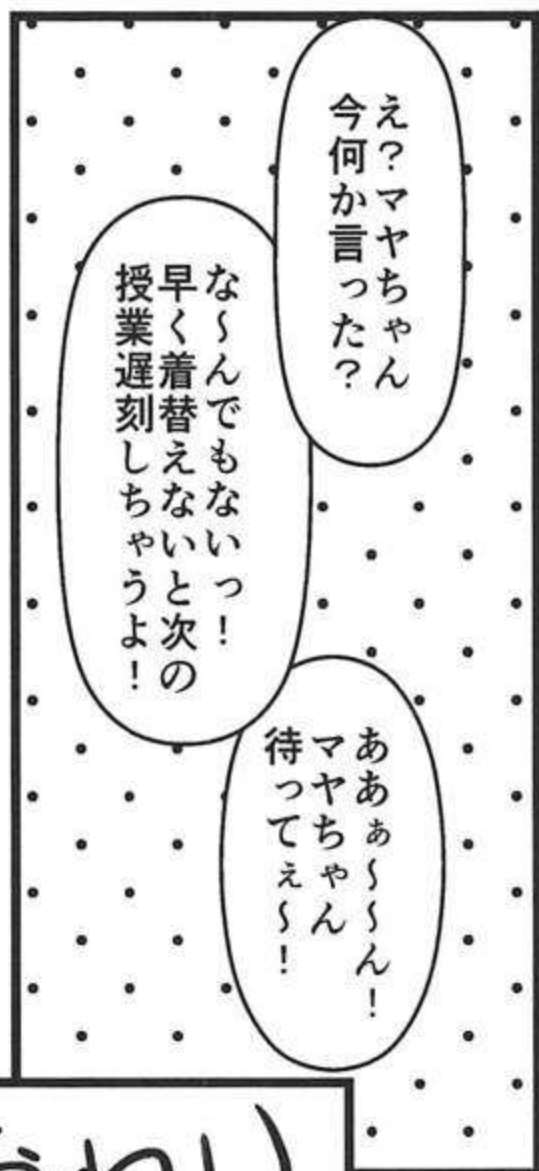 え？マヤちゃん
今何か言った？
な～んでもないっ！
早く着替えないと次の
授業遅刻しちゃうよ！
ああぁ～～ん！
マヤちゃん
待ってぇ～！